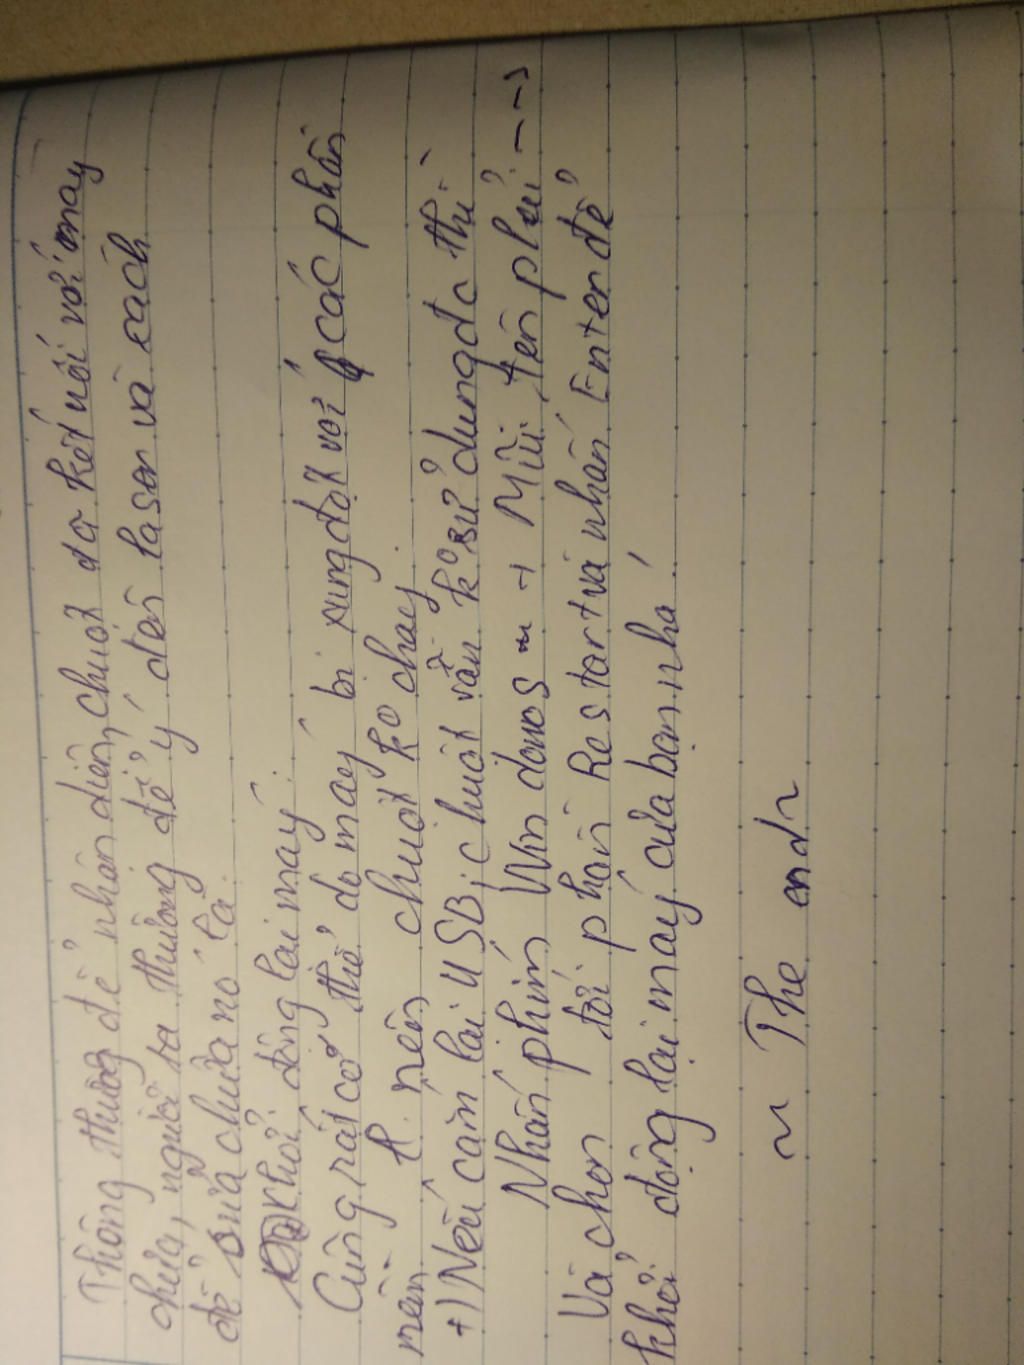 Thông thường để nhận diện, chuột đã kết nối với máy
chưa, người ta thường để ý đến laser và cách
để sửa chữa nó là
Khởi động lại máy:
Cũng rất có thể do máy bị xung đột với các phần
mềm # nên chuột ko chạy.
+) Nếu cắm lại USB, chuột vẫn ko sử dụng đc thì
Nhấn phím Windows ~ + Mũi tên phải -->
Và chọn tới phần Restart và nhấn Enter để
khởi động lại máy của bạn nhá!
~ The end ~